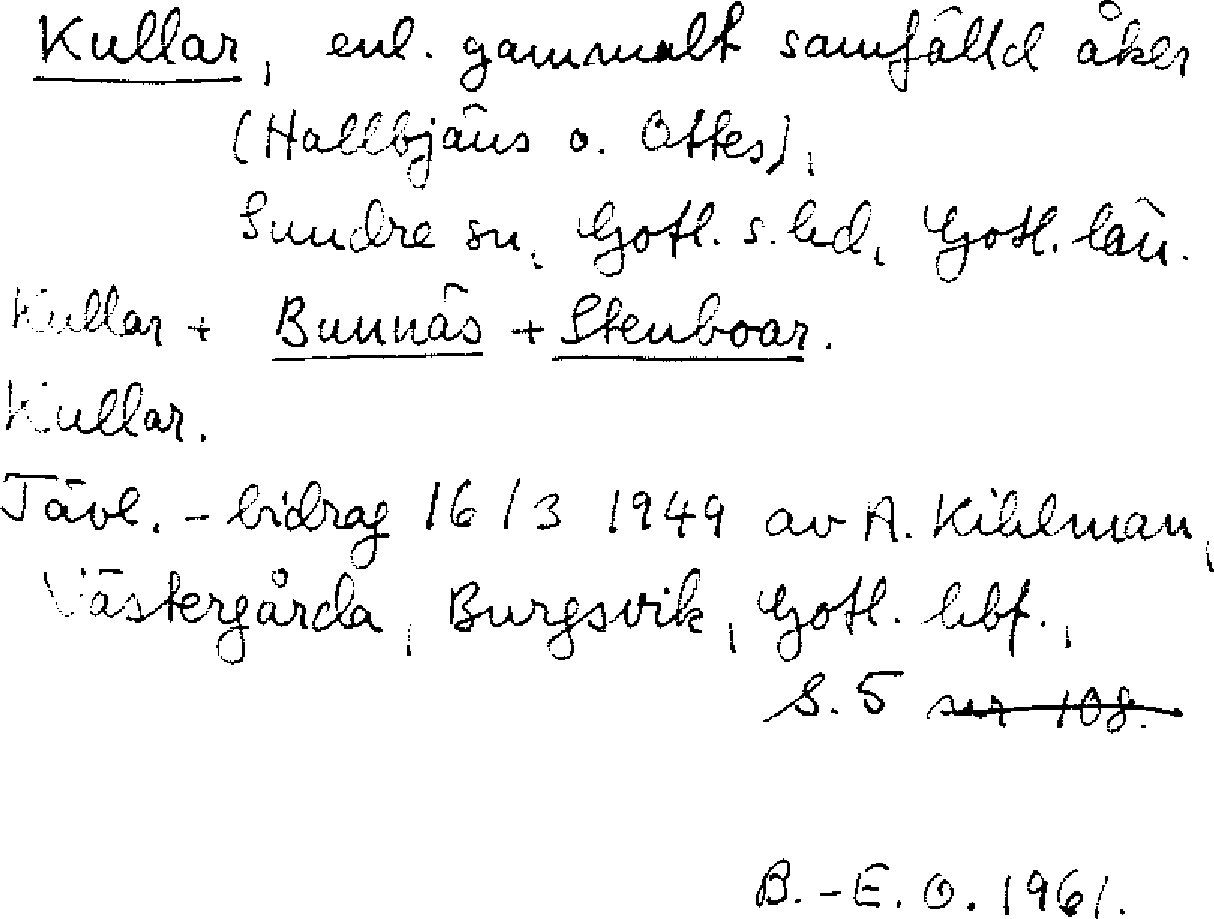 Kullar, enl. gammalt samfälld åker
(Hallbjäns o. Ottes),
Sundre sn, Gotl. s. hd, Gotl. län.
Kullar + Bunnäs + Stenboar.
Kullar.
Tävl. - bidrag 16/3 1949 av A. Kihlman,
Västergårda, Burgsvik, Gotl. hbf.,
S. 5 nr 108.
B.-E. O. 1961.